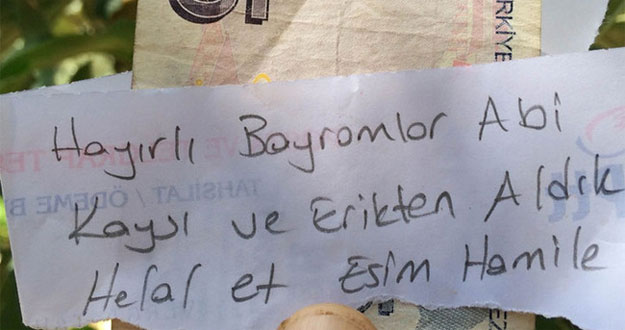 5
TÜRKİYE
Hayırlı Bayramlar Abi
Kaysı ve Erikten Aldık
Helal et Eşim Hamile
TAHSİLAT / ÖDEME B